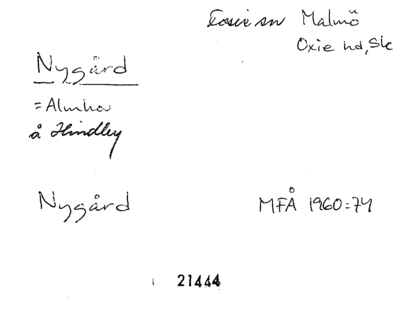 Malmö
Oxie hd, Sk
Nygård
= Almhov
å Hindley
Nygård MFÅ 1960:74
21444